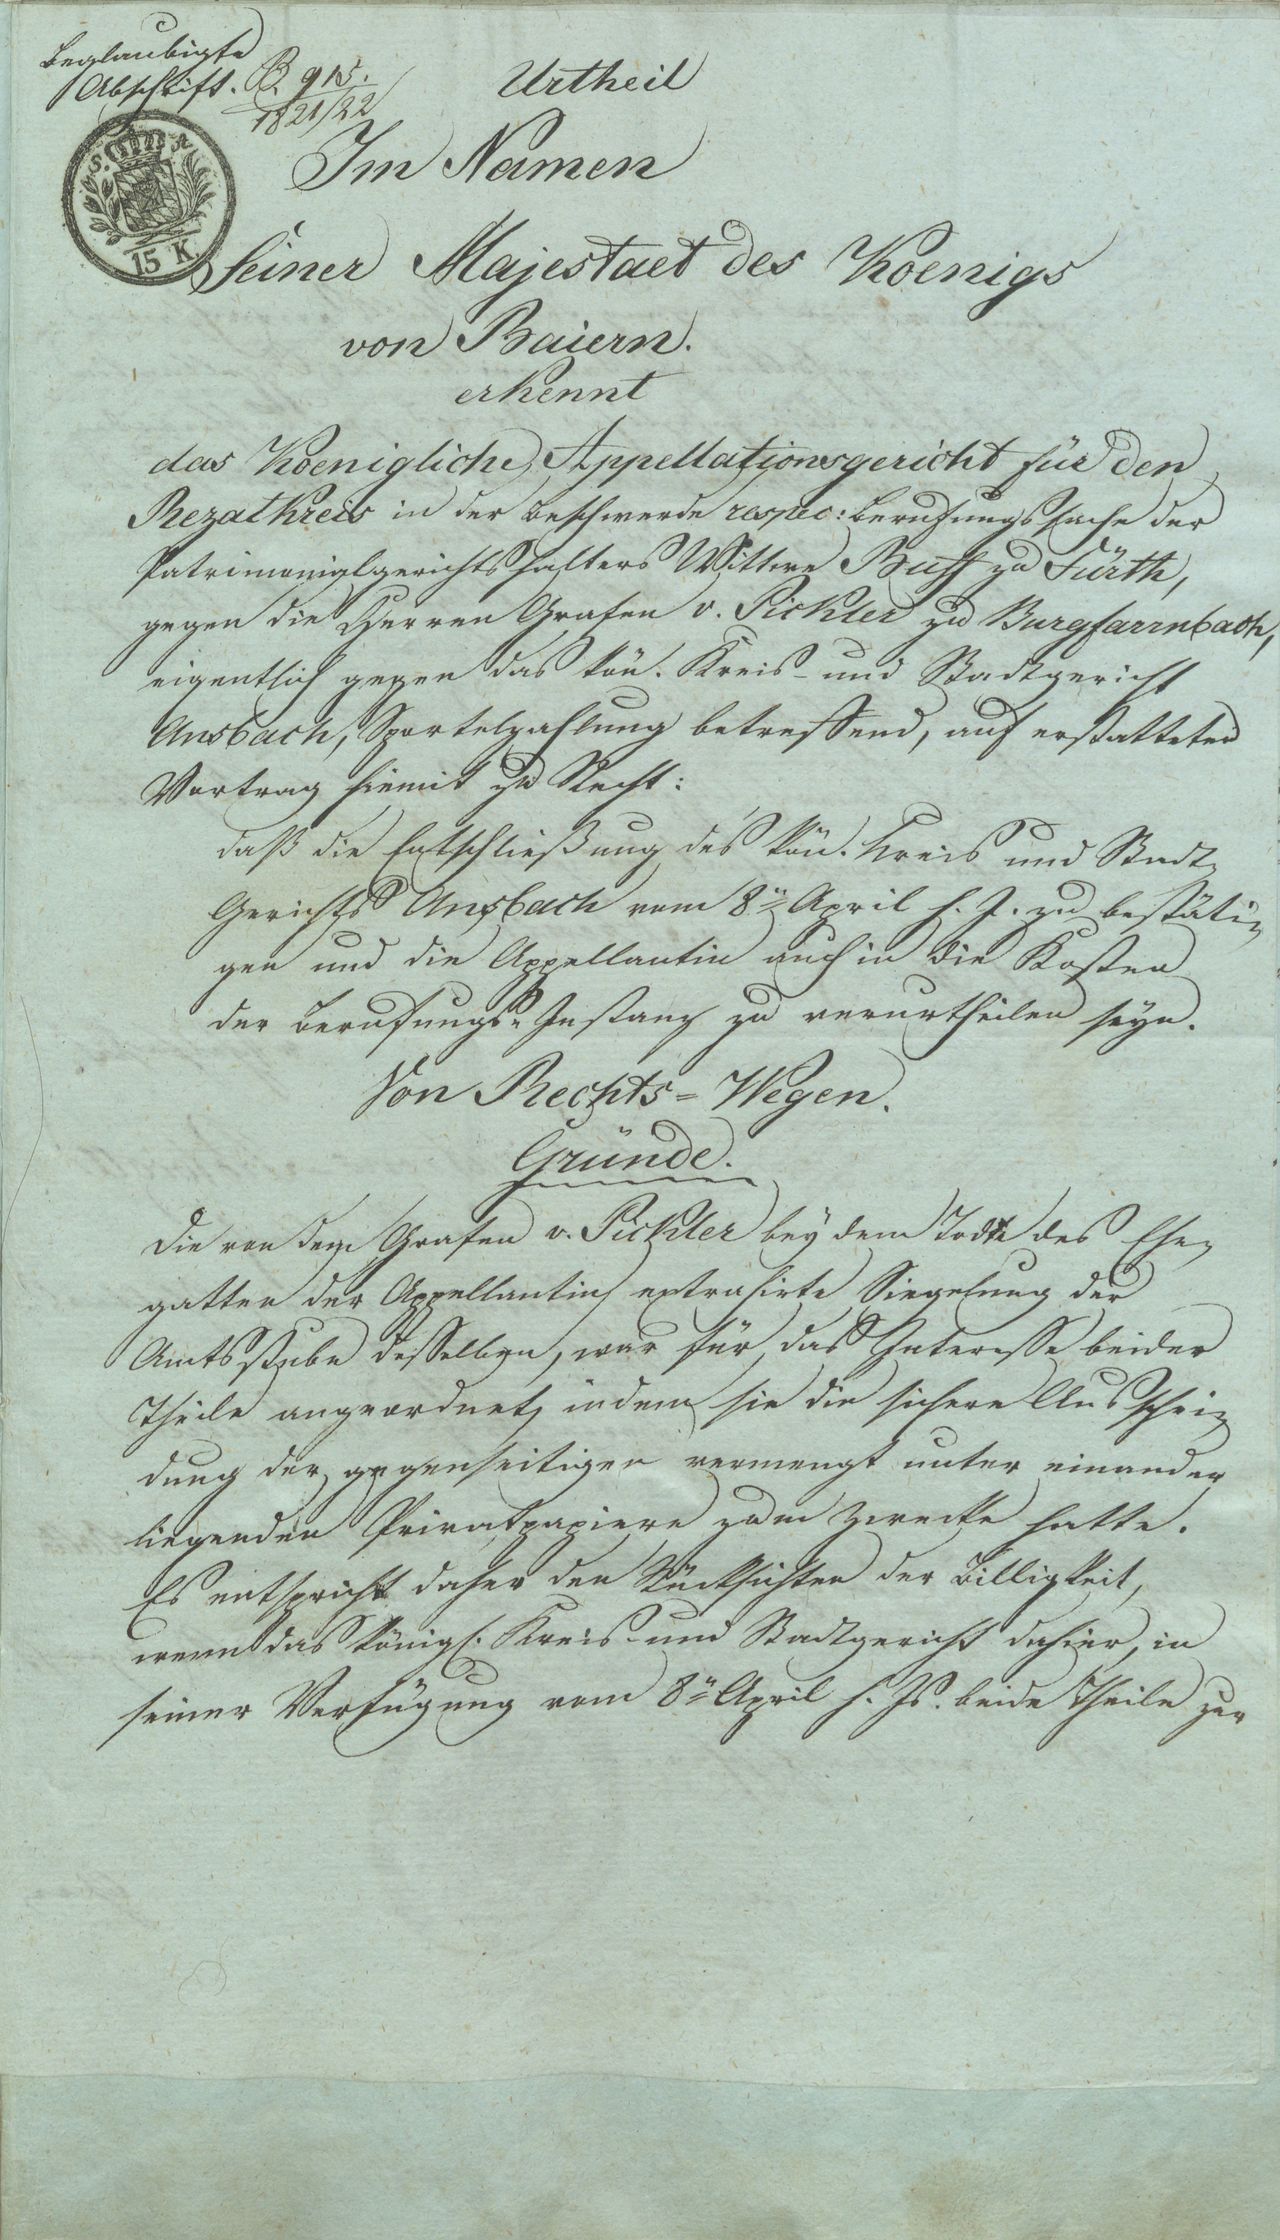 Beglaubigte
Abschrift.
B. 915.
1821/22
S. R.
15 K
Urtheil
Im Namen
Seiner Majestaet des Koenigs
von Baiern.
erkennt
das Koenigliche Appellationsgericht für den
Rezatkreis in der Beschwerde respec: Berufungssache der
Patrimonialgerichtshalters Wittwe Buff zu Fürth,
gegen die Herren Grafen v. Pickler zu Burgfarrnbach,
eigentlich gegen das kön. Kreis- und Stadtgericht
Ansbach, Sportelzahlung betreffend, auf erstatteten
Vortrag hiemit zu Recht:
daß die Entschließung des kön. Kreis und Stadt-
Gerichts Ansbach vom 8n April h. J. zu bestäti-
gen und die Appellantin auch in die Kosten
der Berufungs-Instanz zu verurtheilen seyn.
Von Rechts-Wegen.
Gründe.
Die von dem Grafen v. Pickler bey dem Tode des Ehe-
gatten der Appellantin extrahirte Siegelung der
Amtsstube desselben, war für das Interesse beider
Theile angeordnet, indem sie die sichere Ausschei-
dung der gegenseitigen vermengt unter einander
liegenden Privatpapiere zum Zwecke hatte.
Es entspricht daher den Rücksichten der Billigkeit,
wenn das königl. Kreis- und Stadtgericht dahier, in
seiner Verfügung vom 8n April h. Js. beide Theile zur